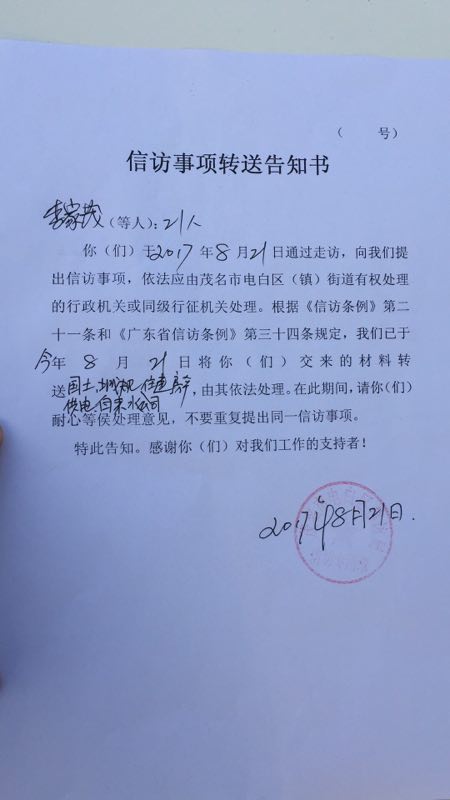 （　　号）
信访事项转送告知书
李家茂（等人）：21人
你（们）于2017年8月21日通过走访，向我们提
出信访事项，依法应由茂名市电白区（镇）街道有权处理
的行政机关或同级行征机关处理。根据《信访条例》第二
十一条和《广东省信访条例》第三十四条规定，我们已于
今年 8 月 21 日将你（们）交来的材料转
国土、城规、住建
送，由其依法处理。在此期间，请你（们）
供电、自来水公司
耐心等侯处理意见，不要重复提出同一信访事项。
特此告知。感谢你（们）对我们工作的支持者！
2017年8月21日.